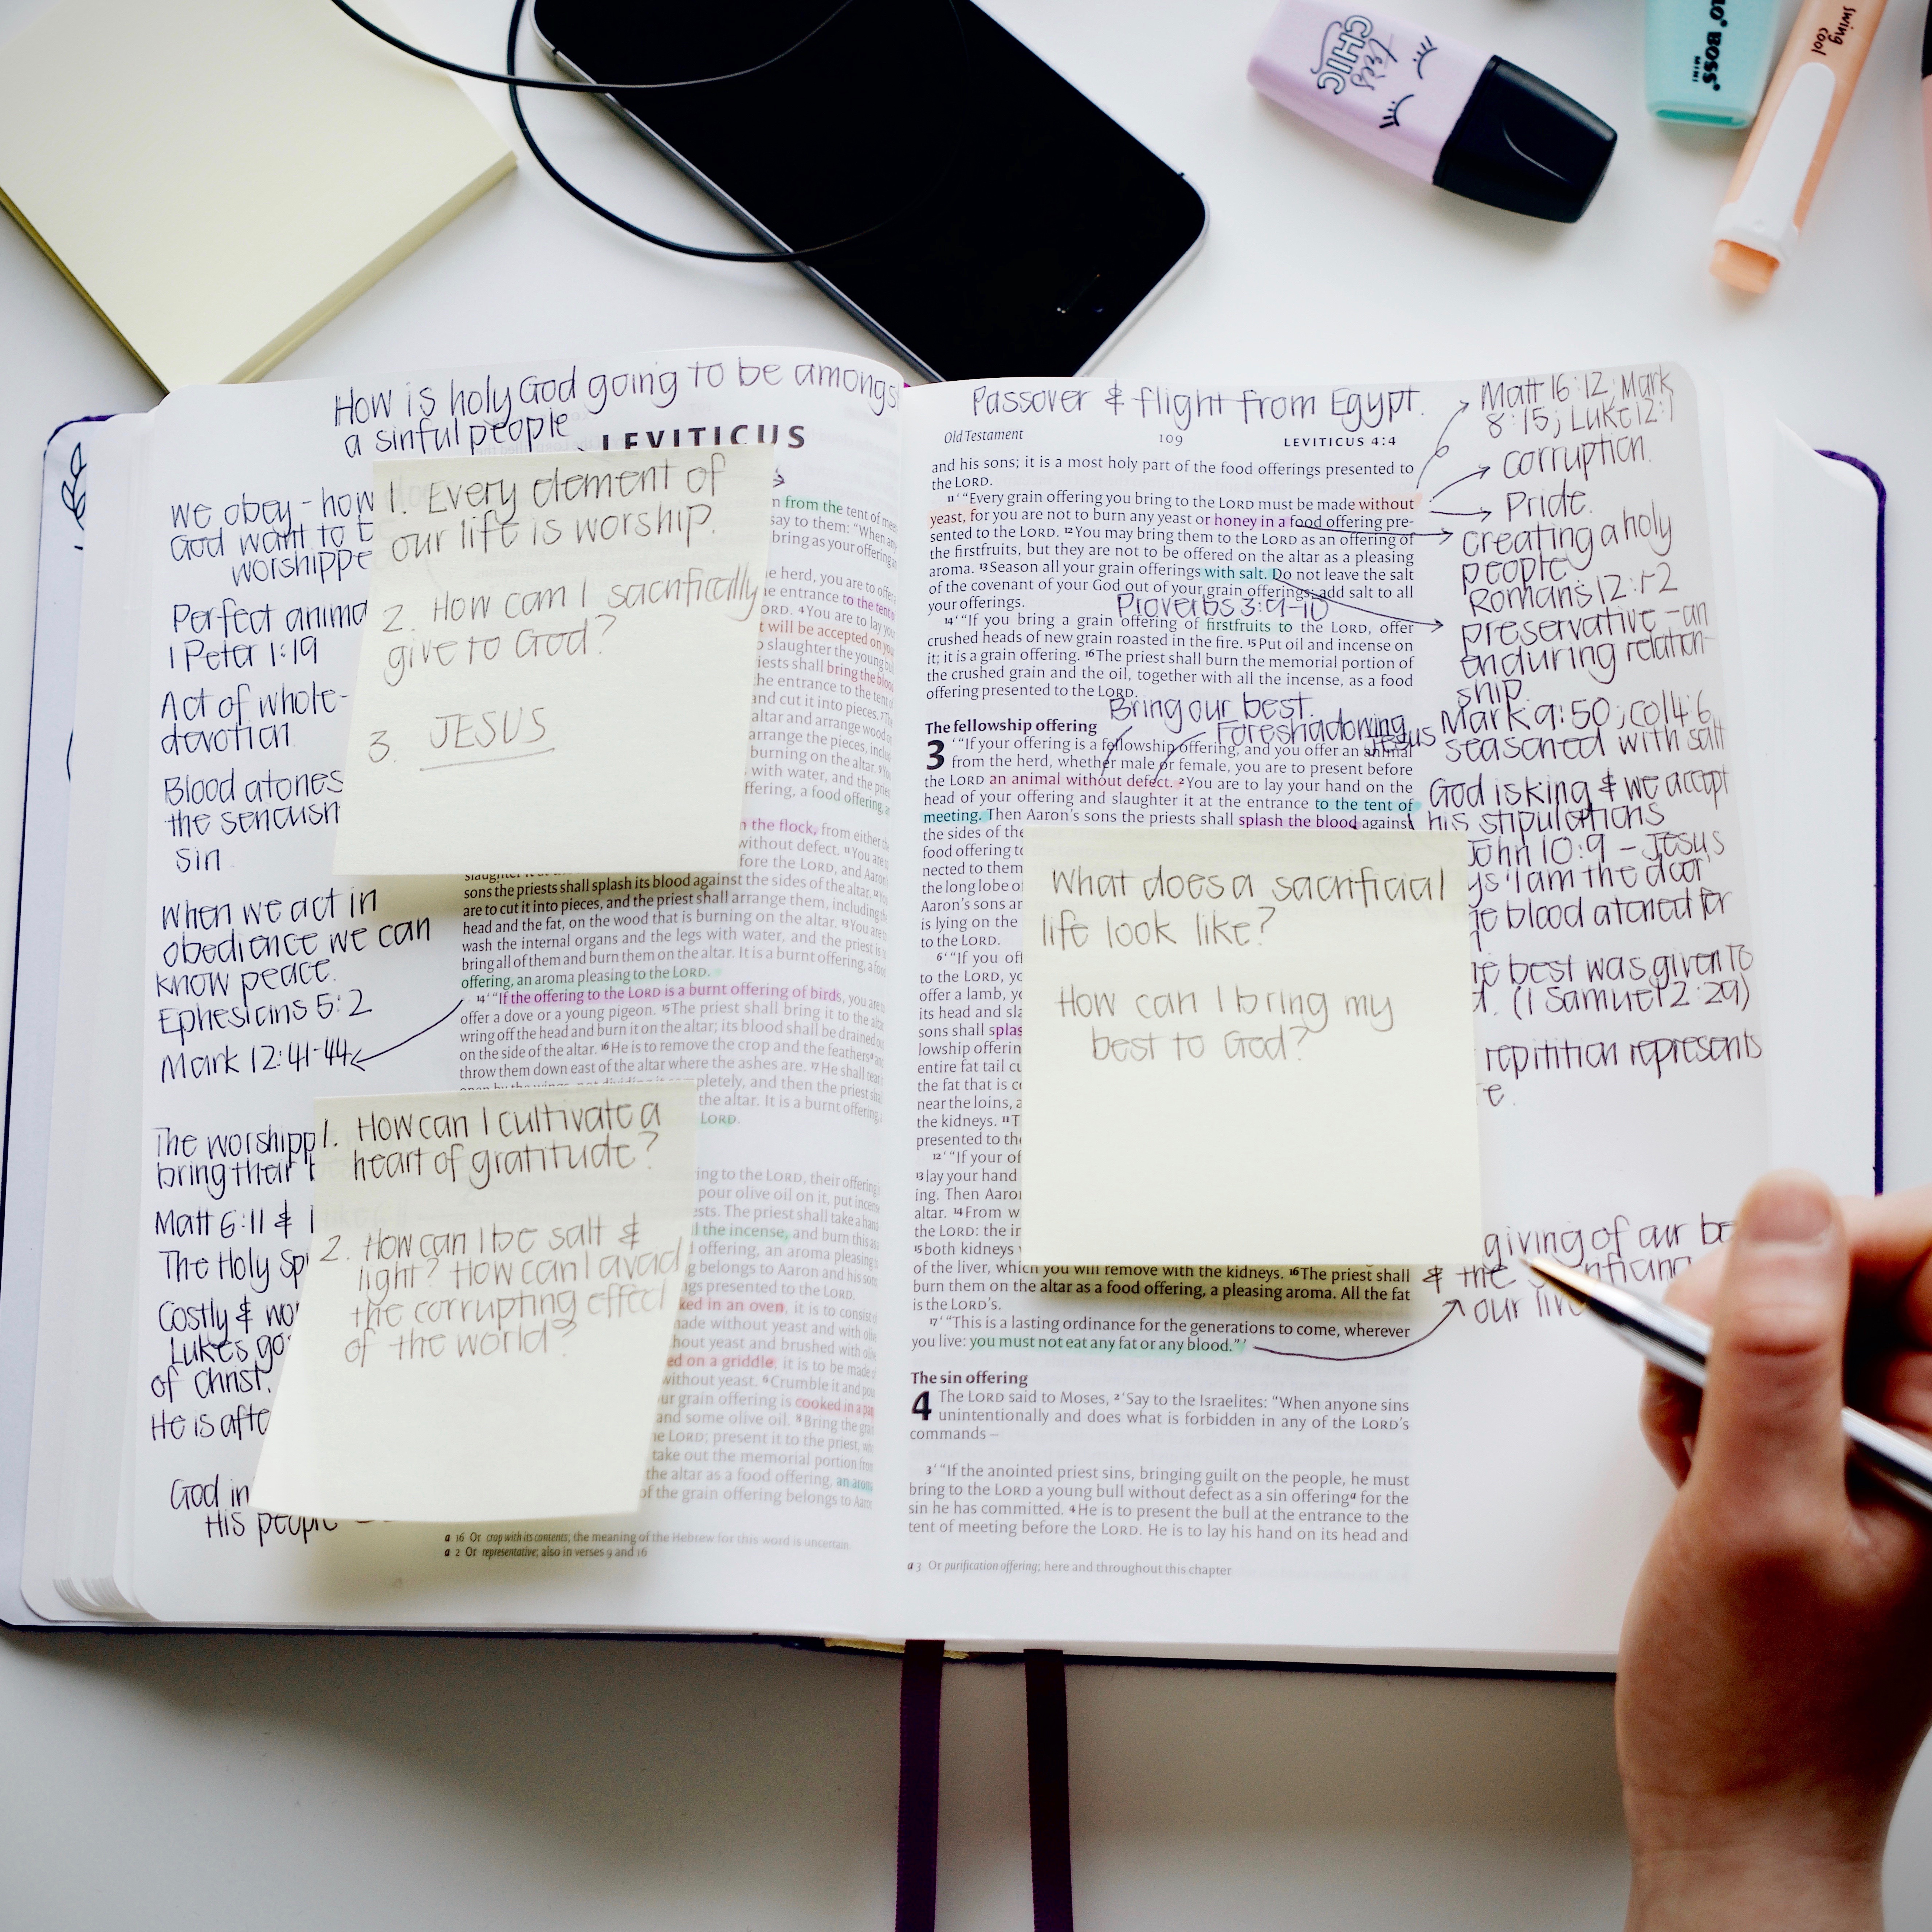 this
CHIC
BOSS®
MINI
swing
cool
How is holy God going to be amongs
a sinful people
LEVITICUS
We obey - how
God want to b
worshippe
Perfect anima
1 Peter 1:19
Act of whole-
devotion
Blood atones
the
sin
When we act in
obedience we can
know peace.
Ephesians 5:2
Mark 12:41-44
The worshipp
bring their
Matt 6:11 &
The Holy Sp
Costly & wo
Lukes go
of Christ.
He is afte
God in
His people
1. Every element of
our life is worship.
2. How can I sacrifically
give to God?
3. JESUS
from the tent of mee
say to them: "When any
bring as your offering
e herd, you are to offer
e entrance to the tent
ORD. ⁴You are to lay
t will be accepted on you
slaughter the young bul
iests shall bring the blood
he entrance to the tent
and cut it into pieces. ⁷The
altar and arrange wood
arrange the pieces, inclu
burning on the altar. ⁹
with water, and the pries
ffering, a food offering, a
the flock, from either the
without defect. ¹¹You are
fore the LORD, and Aaron
sons the priests shall splash its blood against the sides of the altar. ¹²You
are to cut it into pieces, and the priest shall arrange them, including the
head and the fat, on the wood that is burning on the altar. ¹³You are to
wash the internal organs and the legs with water, and the priest is to
bring all of them and burn them on the altar. It is a burnt offering, a food
offering, an aroma pleasing to the LORD.
¹⁴'"If the offering to the LORD is a burnt offering of birds, you are to
offer a dove or a young pigeon. ¹⁵The priest shall bring it to the altar,
wring off the head and burn it on the altar; its blood shall be drained out
on the side of the altar. ¹⁶He is to remove the crop and the feathersᵃ and
throw them down east of the altar where the ashes are. ¹⁷He shall tear
open by the wings, not dividing it completely, and then the priest shall
the altar. It is a burnt offering,
LORD.
1. How can I cultivate a
heart of gratitude?
2. How can I be salt &
light? How can I avoid
the corrupting effect
of the world?
ing to the LORD, their offering
pour olive oil on it, put incense
ests. The priest shall take a hand
l the incense, and burn this as
d offering, an aroma pleasing
g belongs to Aaron and his sons
ngs presented to the LORD.
ked in an oven, it is to consist of
made without yeast and with olive
hout yeast and brushed with olive
ed on a griddle, it is to be made of
without yeast. ⁶Crumble it and pour
ur grain offering is cooked in a pan
and some olive oil. ⁸Bring the grain
he LORD; present it to the priest, who
take out the memorial portion from
the altar as a food offering, an aroma
of the grain offering belongs to Aaron
a 16 Or crop with its contents; the meaning of the Hebrew for this word is uncertain.
a 2 Or representative; also in verses 9 and 16
Passover & flight from Egypt.
Old Testament 109 LEVITICUS 4:4
and his sons; it is a most holy part of the food offerings presented to
the LORD.
¹¹'"Every grain offering you bring to the LORD must be made without
yeast, for you are not to burn any yeast or honey in a food offering pre-
sented to the LORD. ¹²You may bring them to the LORD as an offering of
the firstfruits, but they are not to be offered on the altar as a pleasing
aroma. ¹³Season all your grain offerings with salt. Do not leave the salt
of the covenant of your God out of your grain offerings; add salt to all
your offerings.
Proverbs 3:9-10
¹⁴'"If you bring a grain offering of firstfruits to the LORD, offer
crushed heads of new grain roasted in the fire. ¹⁵Put oil and incense on
it; it is a grain offering. ¹⁶The priest shall burn the memorial portion of
the crushed grain and the oil, together with all the incense, as a food
offering presented to the LORD.
Bring our best.
Foreshadowing
Jesus
The fellowship offering
3 '"If your offering is a fellowship offering, and you offer an animal
from the herd, whether male or female, you are to present before
the LORD an animal without defect. ²You are to lay your hand on the
head of your offering and slaughter it at the entrance to the tent of
meeting. Then Aaron's sons the priests shall splash the blood against
the sides of the
food offering to
nected to them
the long lobe of
Aaron's sons ar
is lying on the
to the LORD.
⁶'"If you off
to the LORD, yo
offer a lamb, yo
its head and sla
sons shall splas
lowship offerin
entire fat tail cu
the fat that is c
near the loins, a
the kidneys. ¹¹T
presented to th
¹²'"If your of
¹³lay your hand
ing. Then Aaro
altar. ¹⁴From w
the LORD: the in
¹⁵both kidneys
of the liver, which you will remove with the kidneys. ¹⁶The priest shall
burn them on the altar as a food offering, a pleasing aroma. All the fat
is the LORD's.
¹⁷'"This is a lasting ordinance for the generations to come, wherever
you live: you must not eat any fat or any blood."'
The sin offering
4 The LORD said to Moses, ²'Say to the Israelites: "When anyone sins
unintentionally and does what is forbidden in any of the LORD's
commands –
³'"If the anointed priest sins, bringing guilt on the people, he must
bring to the LORD a young bull without defect as a sin offeringᵃ for the
sin he has committed. ⁴He is to present the bull at the entrance to the
tent of meeting before the LORD. He is to lay his hand on its head and
a 3 Or purification offering; here and throughout this chapter
What does a sacrificial
life look like?
How can I bring my
best to God?
Matt 16:12; Mark
8:15; Luke 12:1
corruption.
Pride.
creating a holy
people
Romans 12:1-2
preservative - an
enduring relation-
ship.
Mark 9:50; Col 4:6
seasoned with salt
God is king & we accept
his stipulations
John 10:9 - Jesus
ys 'I am the door'
e blood atoned for
e best was given to
d. (1 Samuel 2:29)
repitition represents
e.
giving of our be
& the
our live